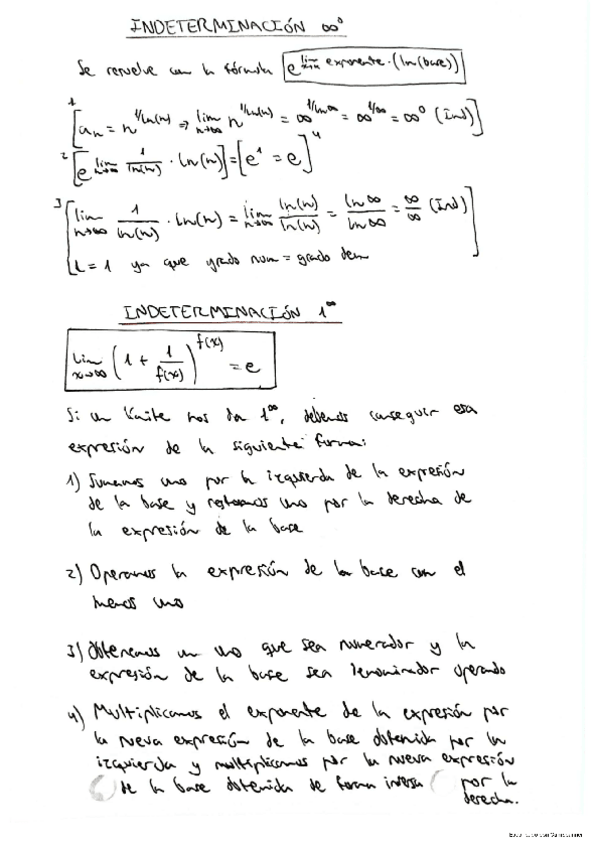 INDETERMINACIÓN ∞⁰
Se resuelve con la fórmula e^(lim x→∞ exponente·(ln(base)))
1 [aₙ = n^(1/ln(n)) ⇒ lim n→∞ n^(1/ln(n)) = ∞^(1/ln∞) = ∞^(1/∞) = ∞⁰ (Ind)]
2 [e^(lim n→∞ 1/ln(n) · ln(n))] = [e¹ = e] 4
3 [lim n→∞ 1/ln(n) · ln(n) = lim n→∞ ln(n)/ln(n) = ln∞/ln∞ = ∞/∞ (Ind)
L = 1 ya que grado num = grado dem]
INDETERMINACIÓN 1^∞
lim x→∞ (1 + 1/f(x))^f(x) = e
Si un límite nos da 1^∞, debemos conseguir esa
expresión de la siguiente forma:
1) Sumamos uno por la izquierda de la expresión
de la base y restamos uno por la derecha de
la expresión de la base
2) Operamos la expresión de la base con el
menos uno
3) Obtenemos un uno que sea numerador y la
expresión de la base sea denominador operando
4) Multiplicamos el exponente de la expresión por
la nueva expresión de la base obtenida por la
izquierda y multiplicamos por la nueva expresión
de la base obtenida de forma inversa por la
derecha.